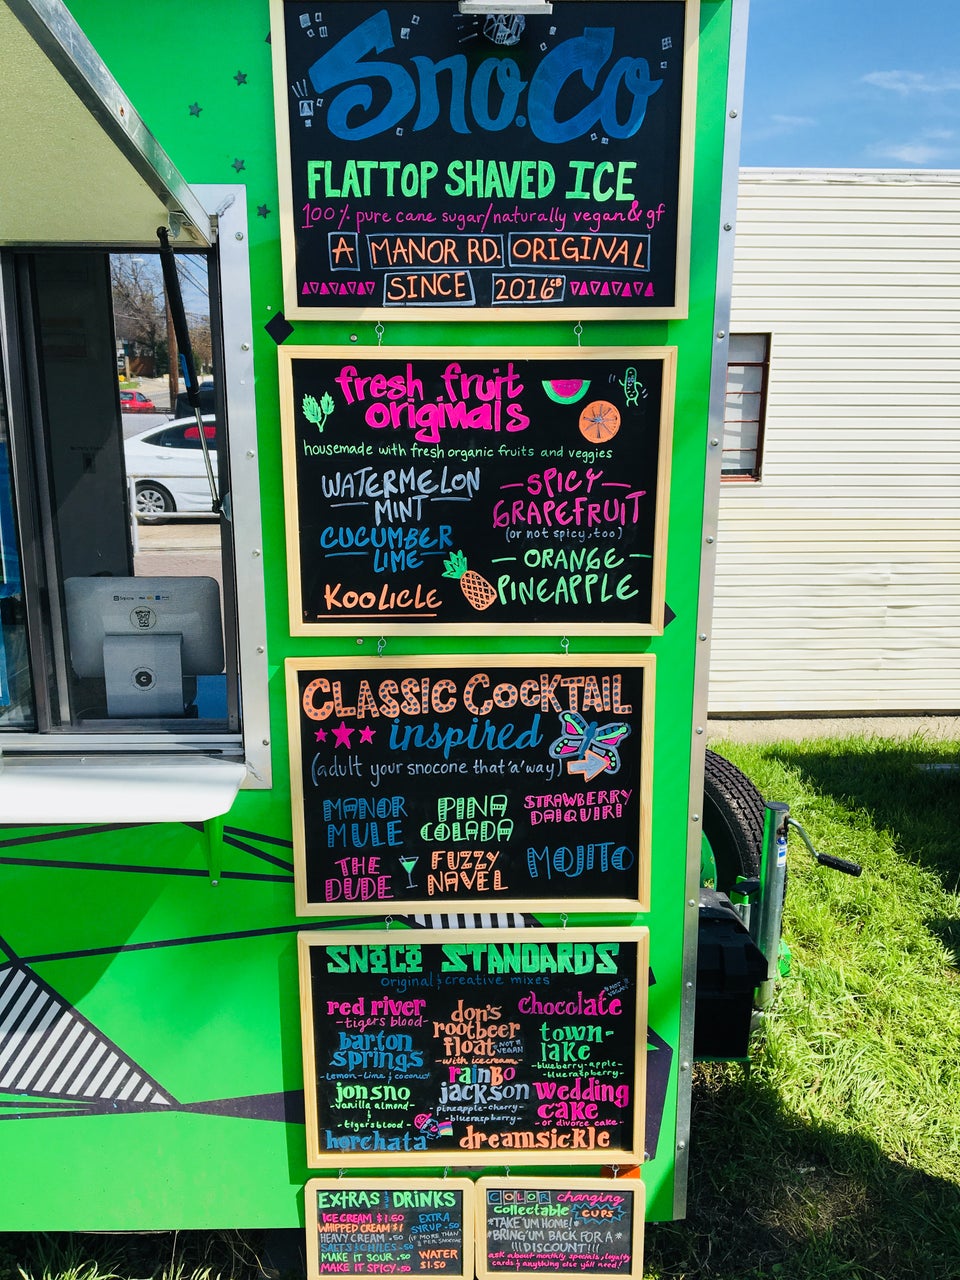 Sno.Co
FLATTOP SHAVED ICE
100% pure cane sugar/naturally vegan & gf
A MANOR RD. ORIGINAL
SINCE 2016
fresh fruit
originals
housemade with fresh organic fruits and veggies
WATERMELON
MINT
CUCUMBER
LIME
KOOLICLE
SPICY
GRAPEFRUIT
(or not spicy, too)
ORANGE
PINEAPPLE
CLASSIC COCKTAIL
inspired
(adult your snocone that 'a' way)
MANOR
MULE
PINA
COLADA
STRAWBERRY
DAIQUIRI
THE
DUDE
FUZZY
NAVEL
MOJITO
SNOCO STANDARDS
original & creative mixes
red river
-tigers blood-
barton
springs
-lemon-lime & coconut-
jonsno
-vanilla almond-
&
-tigersblood-
horchata
don's
rootbeer
float
NOT VEGAN
-with icecream-
rainbo
jackson
pineapple-cherry-
-blueraspberry-
chocolate
NOT VEGAN
town-
lake
-blueberry-apple-
-blueraspberry-
wedding
cake
- or divorce cake -
dreamsickle
EXTRAS & DRINKS
ICE CREAM $1.50
WHIPPED CREAM $1
HEAVY CREAM .50
SALTS & CHILES .50
MAKE IT SOUR .50
MAKE IT SPICY .50
EXTRA
SYRUP .50
(IF MORE THAN
WATER
$1.50
COLOR changing
collectable CUPS
*TAKE 'UM HOME!*
*BRING 'UM BACK FOR A*
!!!DISCOUNT!!!
ask about monthly specials, loyalty
cards & anything else y'all need!